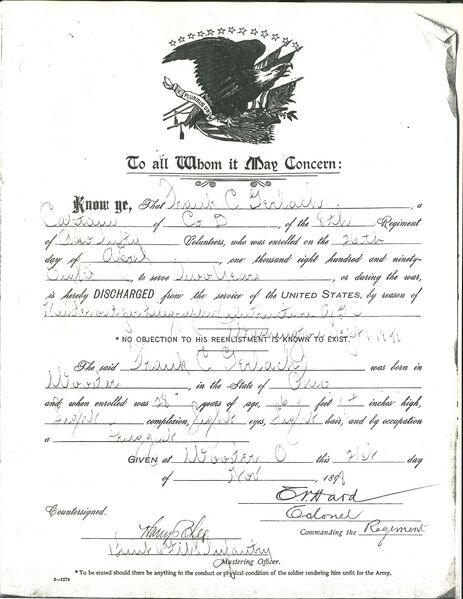 E PLURIBUS UNUM
To all Whom it May Concern:
Know ye, That Frank C Gerlach, a
Captain of Co D of the 8th Regiment
of Ohio Volunteers, who was enrolled on the 26th
day of April, one thousand eight hundred and ninety-
Eight, to serve Two Years, or during the war,
is hereby DISCHARGED from the service of the UNITED STATES, by reason of
Muster out
Washington
* NO OBJECTION TO HIS REENLISTMENT IS KNOWN TO EXIST.
The said Frank C Gerlach was born in
Wooster, in the State of Ohio
and when enrolled was 28 years of age, 6 feet inches high,
Light complexion, eyes, Light hair, and by occupation
a
GIVEN at Wooster O this 21st day
of Nov, 1898
Colonel
Countersigned. Commanding the Regiment
Lieut Infantry
Mustering Officer.
* To be erased should there be anything in the conduct or physical condition of the soldier rendering him unfit for the Army.